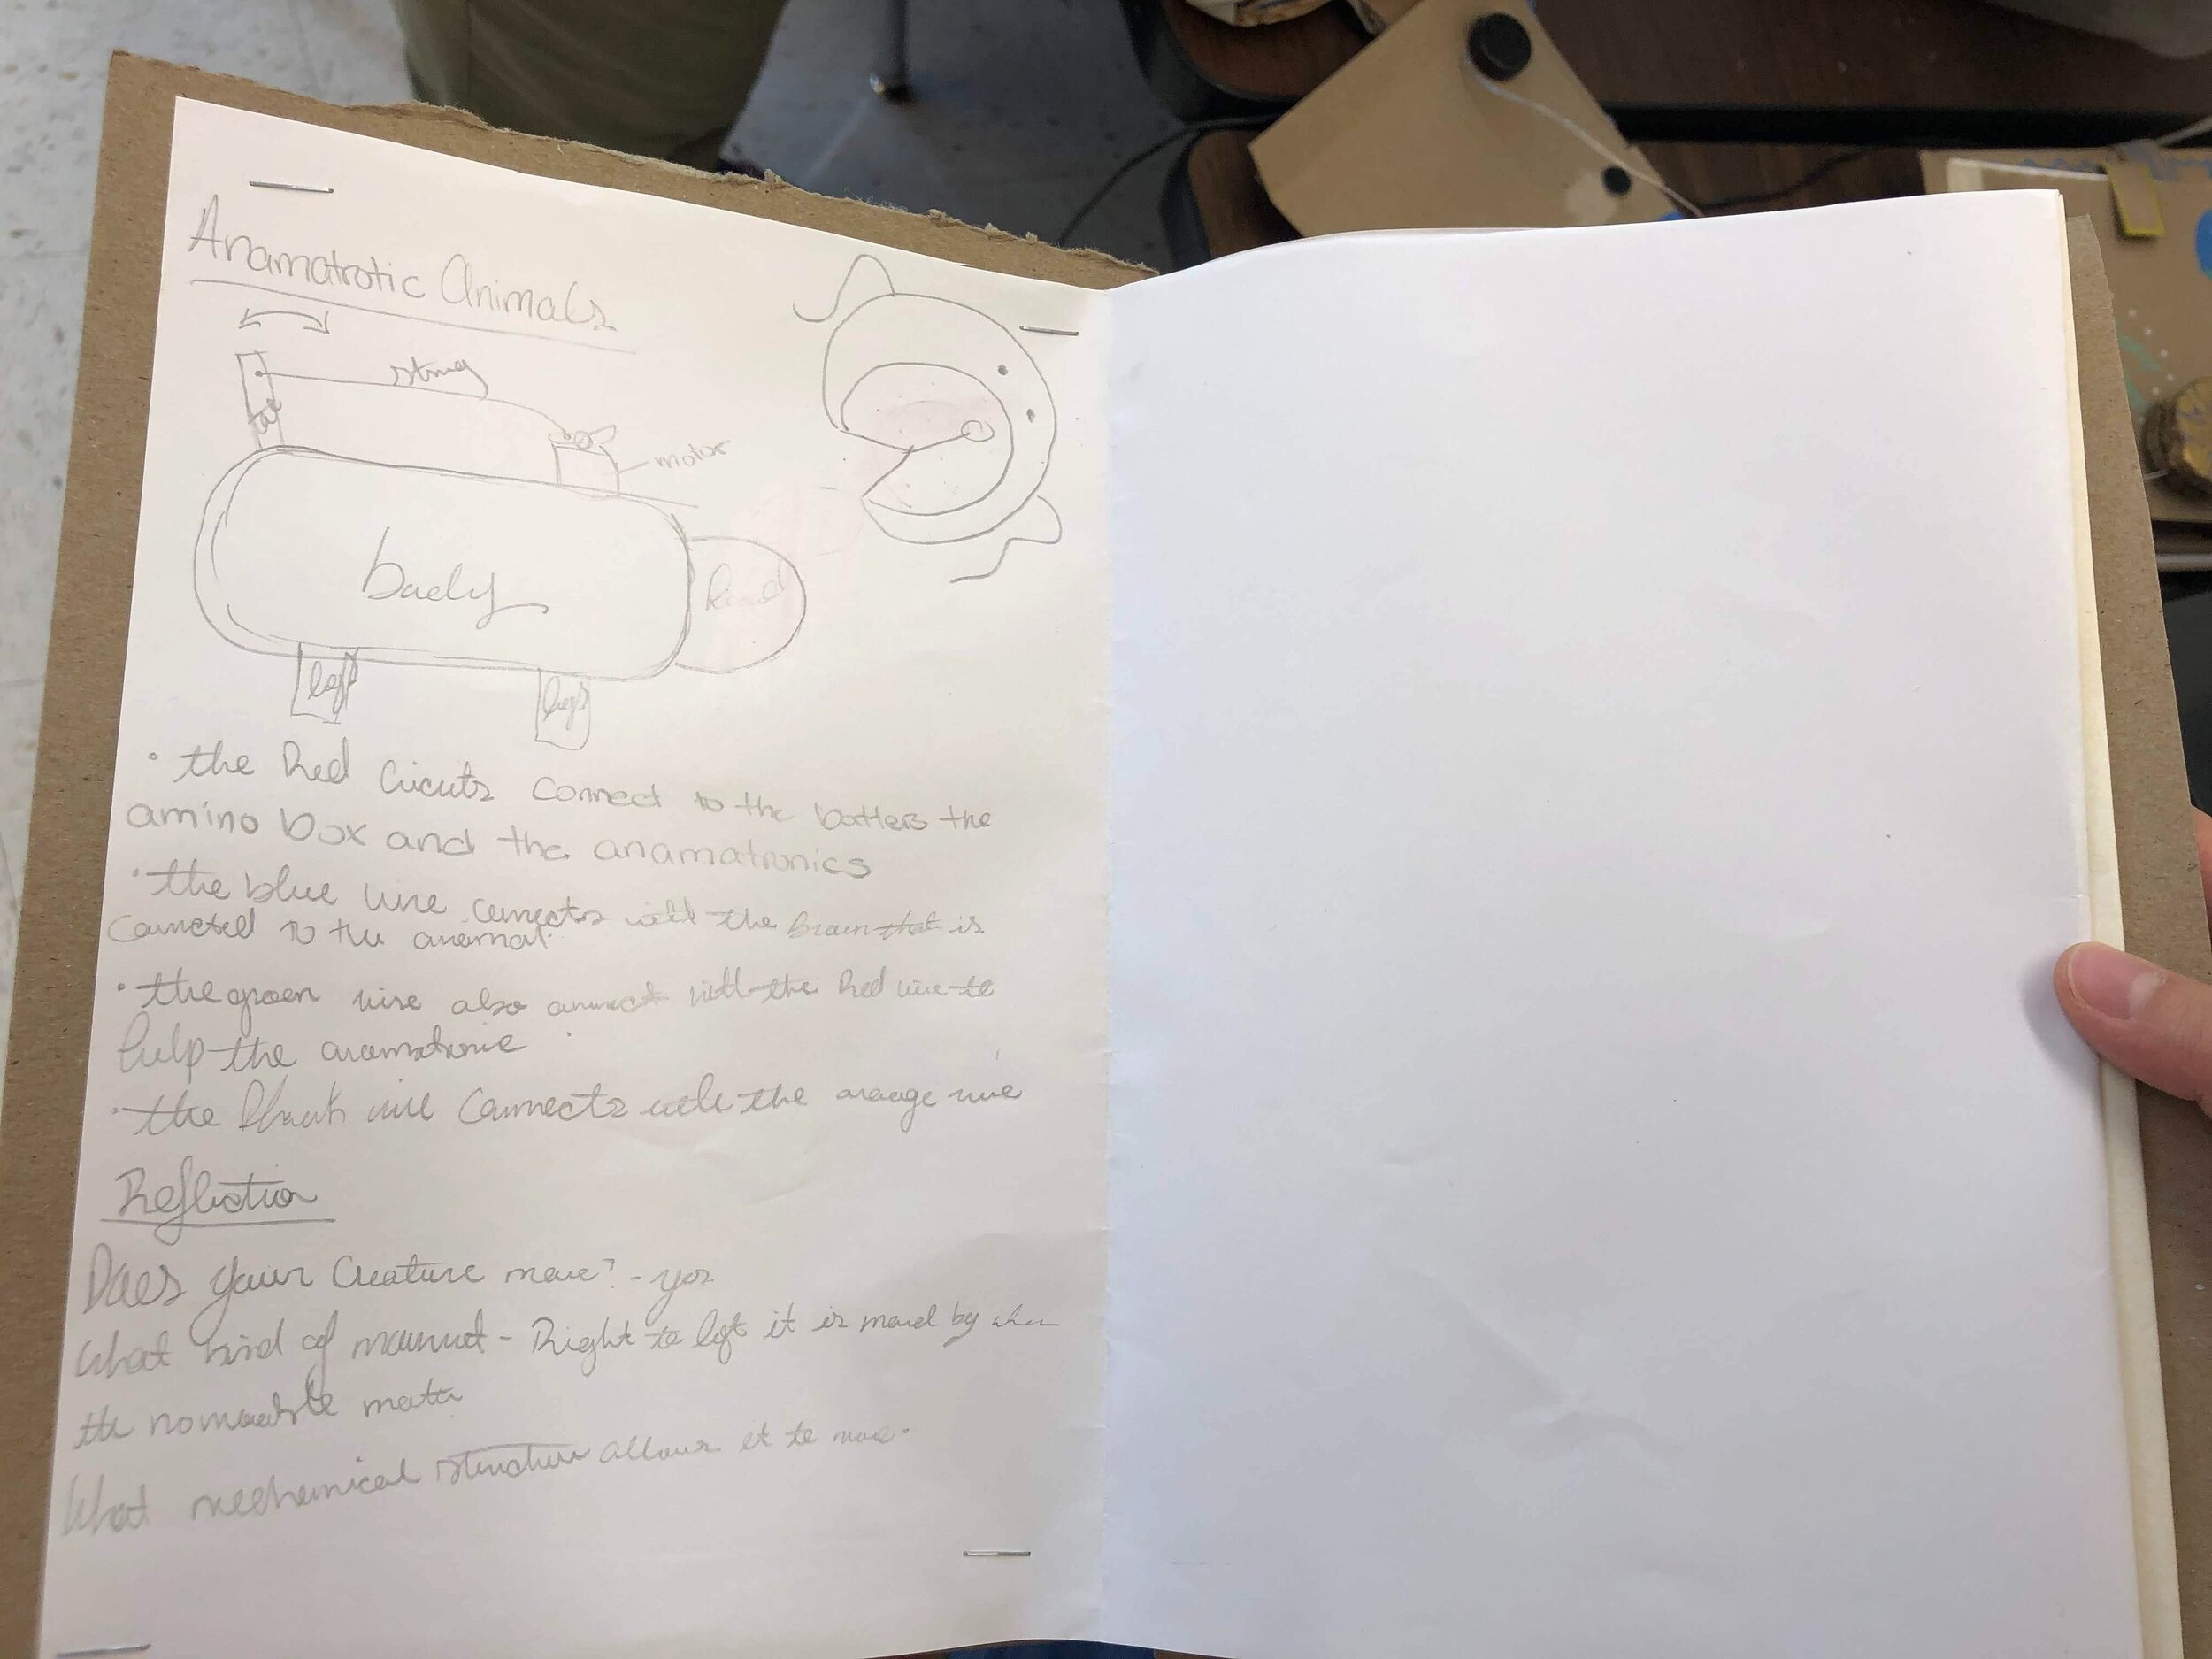 Anamatrotic Animals
string
tail
motor
body
head
legs
legs
• the Red Circuts connect to the batters the
amino box and the anamatronics
• the blue wire connects with the brain that is
connected to the anamal.
• the green wire also connect with the Red wire to
help the anamatronic
• the Black wire connects with the orange wire
Reflection
Does your creature move? - yes
What kind of - Right to left it is moved by
the
What mechanical structure allows it to move.